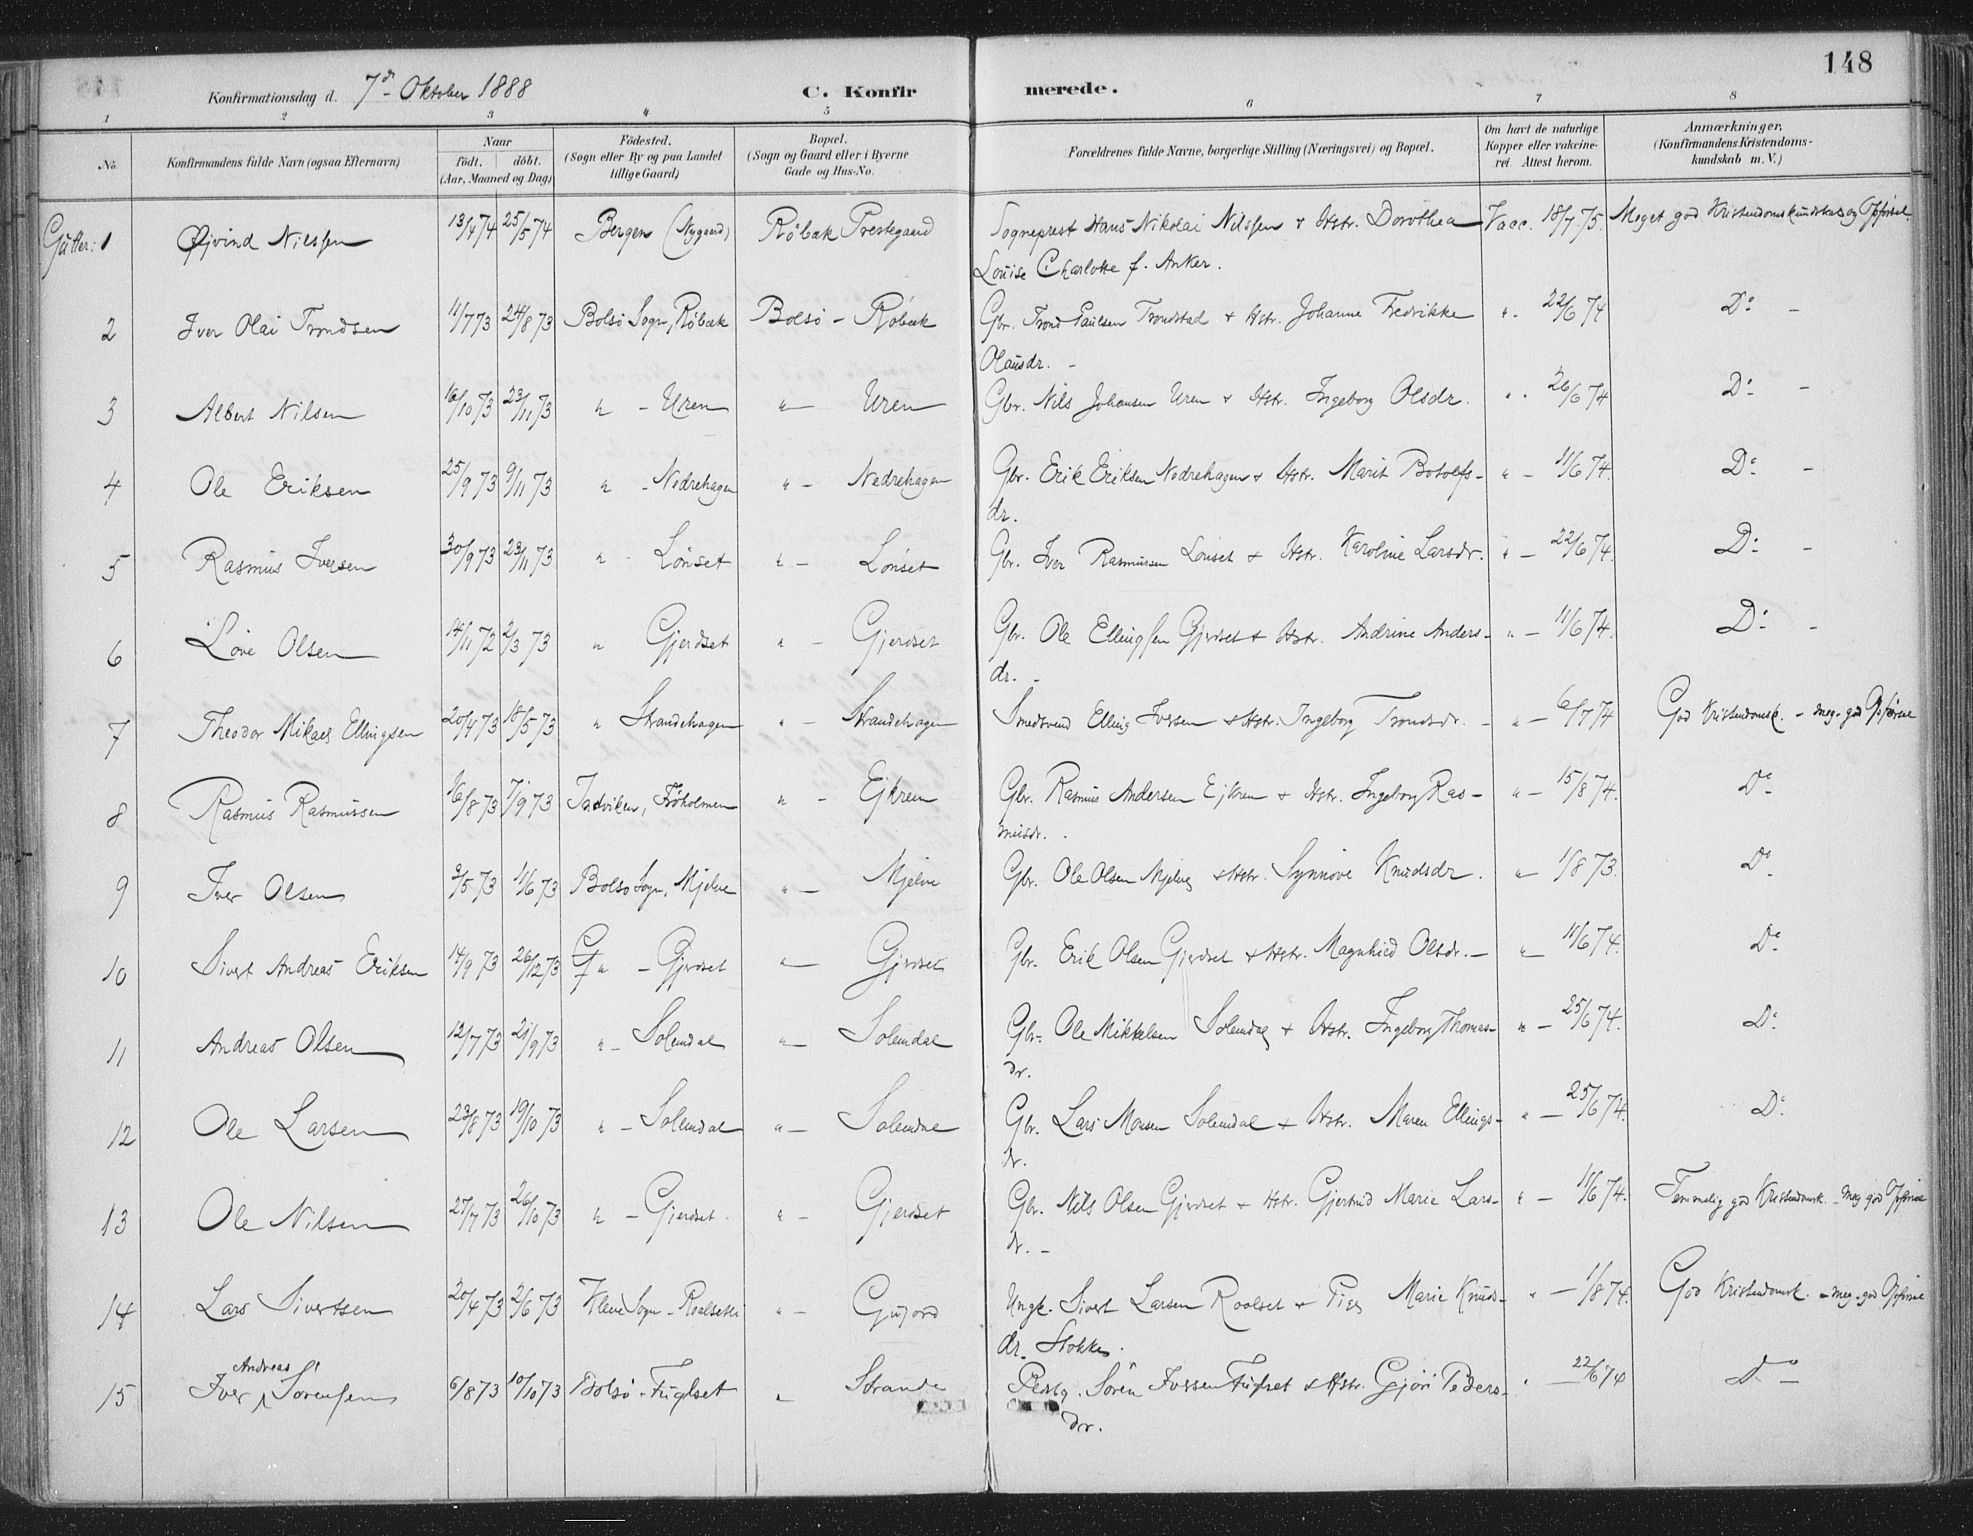 148
Konfirmationsdag d. 7de Oktober 1888 C. Konfirmerede.
1 2 3 4 5 6 7 8
No. Konfirmandens fulde Navn (ogsaa Efternavn) Naar födt. döbt. (Aar, Maaned og Dag) Födested. (Sogn eller By og paa Landet tillige Gaard) Bopæl. (Sogn og Gaard eller i Byerne Gade og Hus-No. Forældrenes fulde Navne, borgerlige Stilling (Næringsvei) og Bopæl. Om havt de naturlige Kopper eller vakcinerei. Attest herom. Anmærkninger, (Konfirmandens Kristendomskundskab m. V.)
Gutter: 1 Øjvind Nilssen 13/4 74 25/5 74 Bergen (Nygaard) Røbæk Prestegaard Sogneprest Hans Nikolai Nilssen & Hstr. Dorothea Vacc. 18/7 75. Meget god Kristendomskundskab og Opførsel
Louise Charlotte f. Anker.
2 Iver Olai Trondsen 11/7 73 24/8 73 Bolsö Sogn, Röbæk Bolsö - Röbæk Gbr. Trond Paulsen Trondstad & Hstr. Johanne Fredrikke " . 22/6 74 Do -
Olausdr. -
3 Albert Nilsen 16/10 73 23/11 73 " - Uren " - Uren Gbr. Nils Johansen Uren & Hstr. Ingeborg Olsdr. " . 26/6 74 Do -
4 Ole Eriksen 25/9 73 9/11 73 " - Nedrehagen " - Nedrehagen Gbr. Erik Eriksen Nedrehagen & Hstr. Marit Botolfs- " - 11/6 74. Do -
dr.
5 Rasmus Iversen 30/9 73 23/11 73 " - Lönset " - Lönset Gbr. Iver Rasmussen Lönset & Hstr. Karoline Larsdr. " - 22/6 74. Do -
6 Love Olsen 14/11 72 2/3 73 " Gjerdset " - Gjerdset Gbr. Ole Ellingsen Gjerdset & Hstr. Andrine Anders- " - 11/6 74. Do -
dr. -
7 Theodor Mikael Ellingsen 20/4 73 18/5 73 " Strandehagen " - Strandehagen Smedsvend Elling Iversen & Hstr. Ingeborg Trondsdr. - " - 6/7 74 God Kristendomsk. - meg. god Opførsel
8 Rasmus Rasmussen 16/8 73 7/9 73 " - Ejkrem Gbr. Rasmus Andersen Ejkrem & Hstr. Ingeborg Ras- " - 15/8 74. Do
musdr. .
9 Iver Olsen 3/5 73 11/6 73 Bolsö Sogn, Mjelve " - Mjelve Gbr. Ole Olsen Mjelve & Hstr. Synnöve Knudsdr. " 1/8 73. Do
10 Sivert Andreas Eriksen 14/9 73 26/12 73 " - Gjerdset " Gjerdset Gbr. Erik Olsen Gjerdset & Hstr. Magnhild Olsdr. - " 11/6 74. Do
11 Andreas Olsen 12/7 73 21/9 73 " - Solemdal " Solemdal Gbr. Ole Mikkelsen Solemdal & Hstr. Ingeborg Thomas- " - 25/6 74. Do
dr.
12 Ole Larsen 23/8 73 19/10 73 " - Solemdal " - Solemdal Gbr. Lars Monsen Solemdal & Hstr. Maren Ellings- " - 25/6 74. Do
dr.
13 Ole Nilsen 27/7 73 26/10 73 " - Gjerdset " - Gjerdset Gbr. Nils Olsen Gjerdset & Hstr. Gjertrud Marie Lars- " - 11/6 74. Temmelig god Kristendomsk. - meg god Opførsel
dr. -
14 Lars Sivertsen 20/4 73 2/6 73 Kleve Sogn - " - Gujord Ungk. Sivert Larsen Roalset & Pige Marie Knuds- " - 1/8 74. God Kristendomsk. - meg. god Opførsel
dr. Stokke.
Andreas
15 Iver Sörensen 6/8 73 10/10 73 Bolsö - Fuglset " Strande Sören Iversen Fuglset & Hstr. Gjöri Peders- " - 22/6 74 Do -
dr.